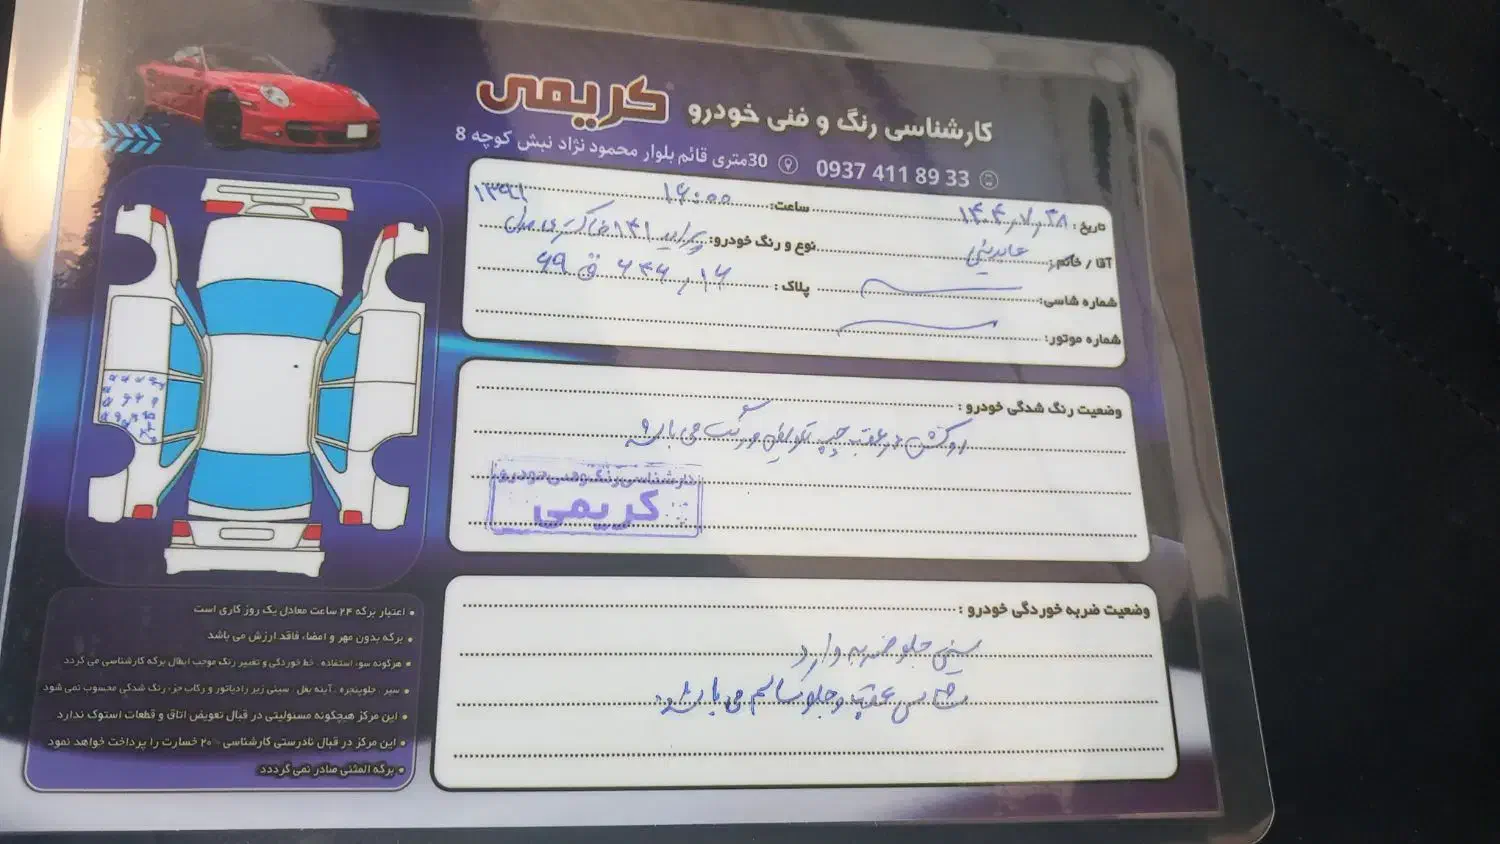 کارشناسی رنگ و فنی خودرو کریمی
0937 411 89 33 30متری قائم بلوار محمود نژاد نبش کوچه 8
تاریخ : ۱۴۰۴٫۷٫۲۸ ساعت: ۱۶:۰۰
آقا / خانم: نوع و رنگ خودرو: پراید ۱۳۱ خاکستری مدل ۱۳۹۱
شماره شاسی: پلاک :
شماره موتور:
وضعیت رنگ شدگی خودرو :
درعقب چپ می باشد
کارشناسی رنگ وفنی خودرو
کریمی
وضعیت ضربه خوردگی خودرو :
سینی جلو ضربه دارد
شاسی عقب و جلو سالم می باشد.
• اعتبار برگه ۲۴ ساعت معادل یک روز کاری است
• برگه بدون مهر و امضاء فاقد ارزش می باشد
• هرگونه سوء استفاده . خط خوردگی و تغییر رنگ موجب ابطال برگه کارشناسی می گردد
• سپر . جلوپنجره . آینه بغل . سینی زیر رادیاتور و رکاب جزء رنگ شدگی محسوب نمی شود
• این مرکز هیچگونه مسئولیتی در قبال تعویض اتاق و قطعات استوک ندارد
• این مرکز در قبال نادرستی کارشناسی ۲۰٪ خسارت را پرداخت خواهد نمود
• برگه المثنی صادر نمی گرددد